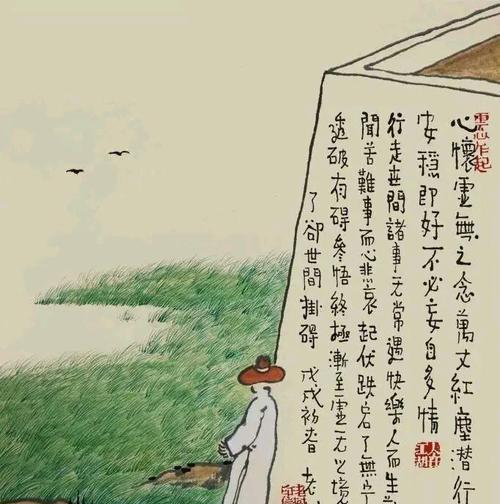 心懷虛無之念萬丈紅塵潜行
安穩即好不必妄自多情
行走世間諸事无常遇快樂人而生
聞苦難事而心悲哀起伏跌宕了無定
透破有碍參悟終極漸至虛无之境
了卻世間掛碍 戊戌初春 老